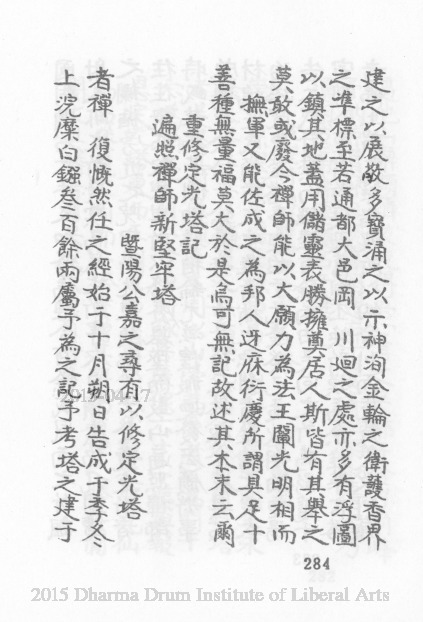 建之以展敬多寶涌之以示神洵金輪之衛護香界
之準標至若通都大邑岡 川廻之處亦多有浮圖
以鎮其地蓋用儲靈表勝擁奠居人斯皆有其舉之
莫敢或廢今禪師能以大願力為法王闡光明相而
撫軍又能佐成之為邦人迓庥衍慶所謂具足十
善種無量福莫大於是烏可無記故述其本末云爾
重修定光塔記
遍照禪師新堅牢塔
暨陽公嘉之尋有以修定光塔
者禪 復慨然任之經始于十月朔日告成于季冬
上浣糜白鏹叄百餘兩屬予為之記予考塔之建于
284
2015 Dharma Drum Institute of Liberal Arts